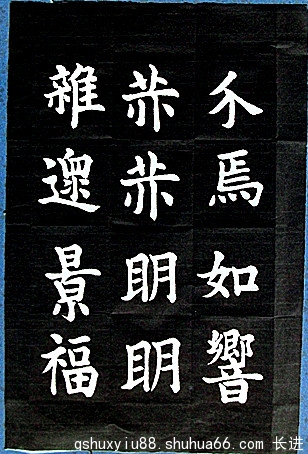 尒焉如響
赫赫明明
雜遝景福
qshuxyiu88.shuhua66.com 长进